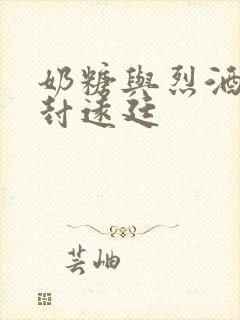 奶糖與烈酒
封遠廷
芸岫